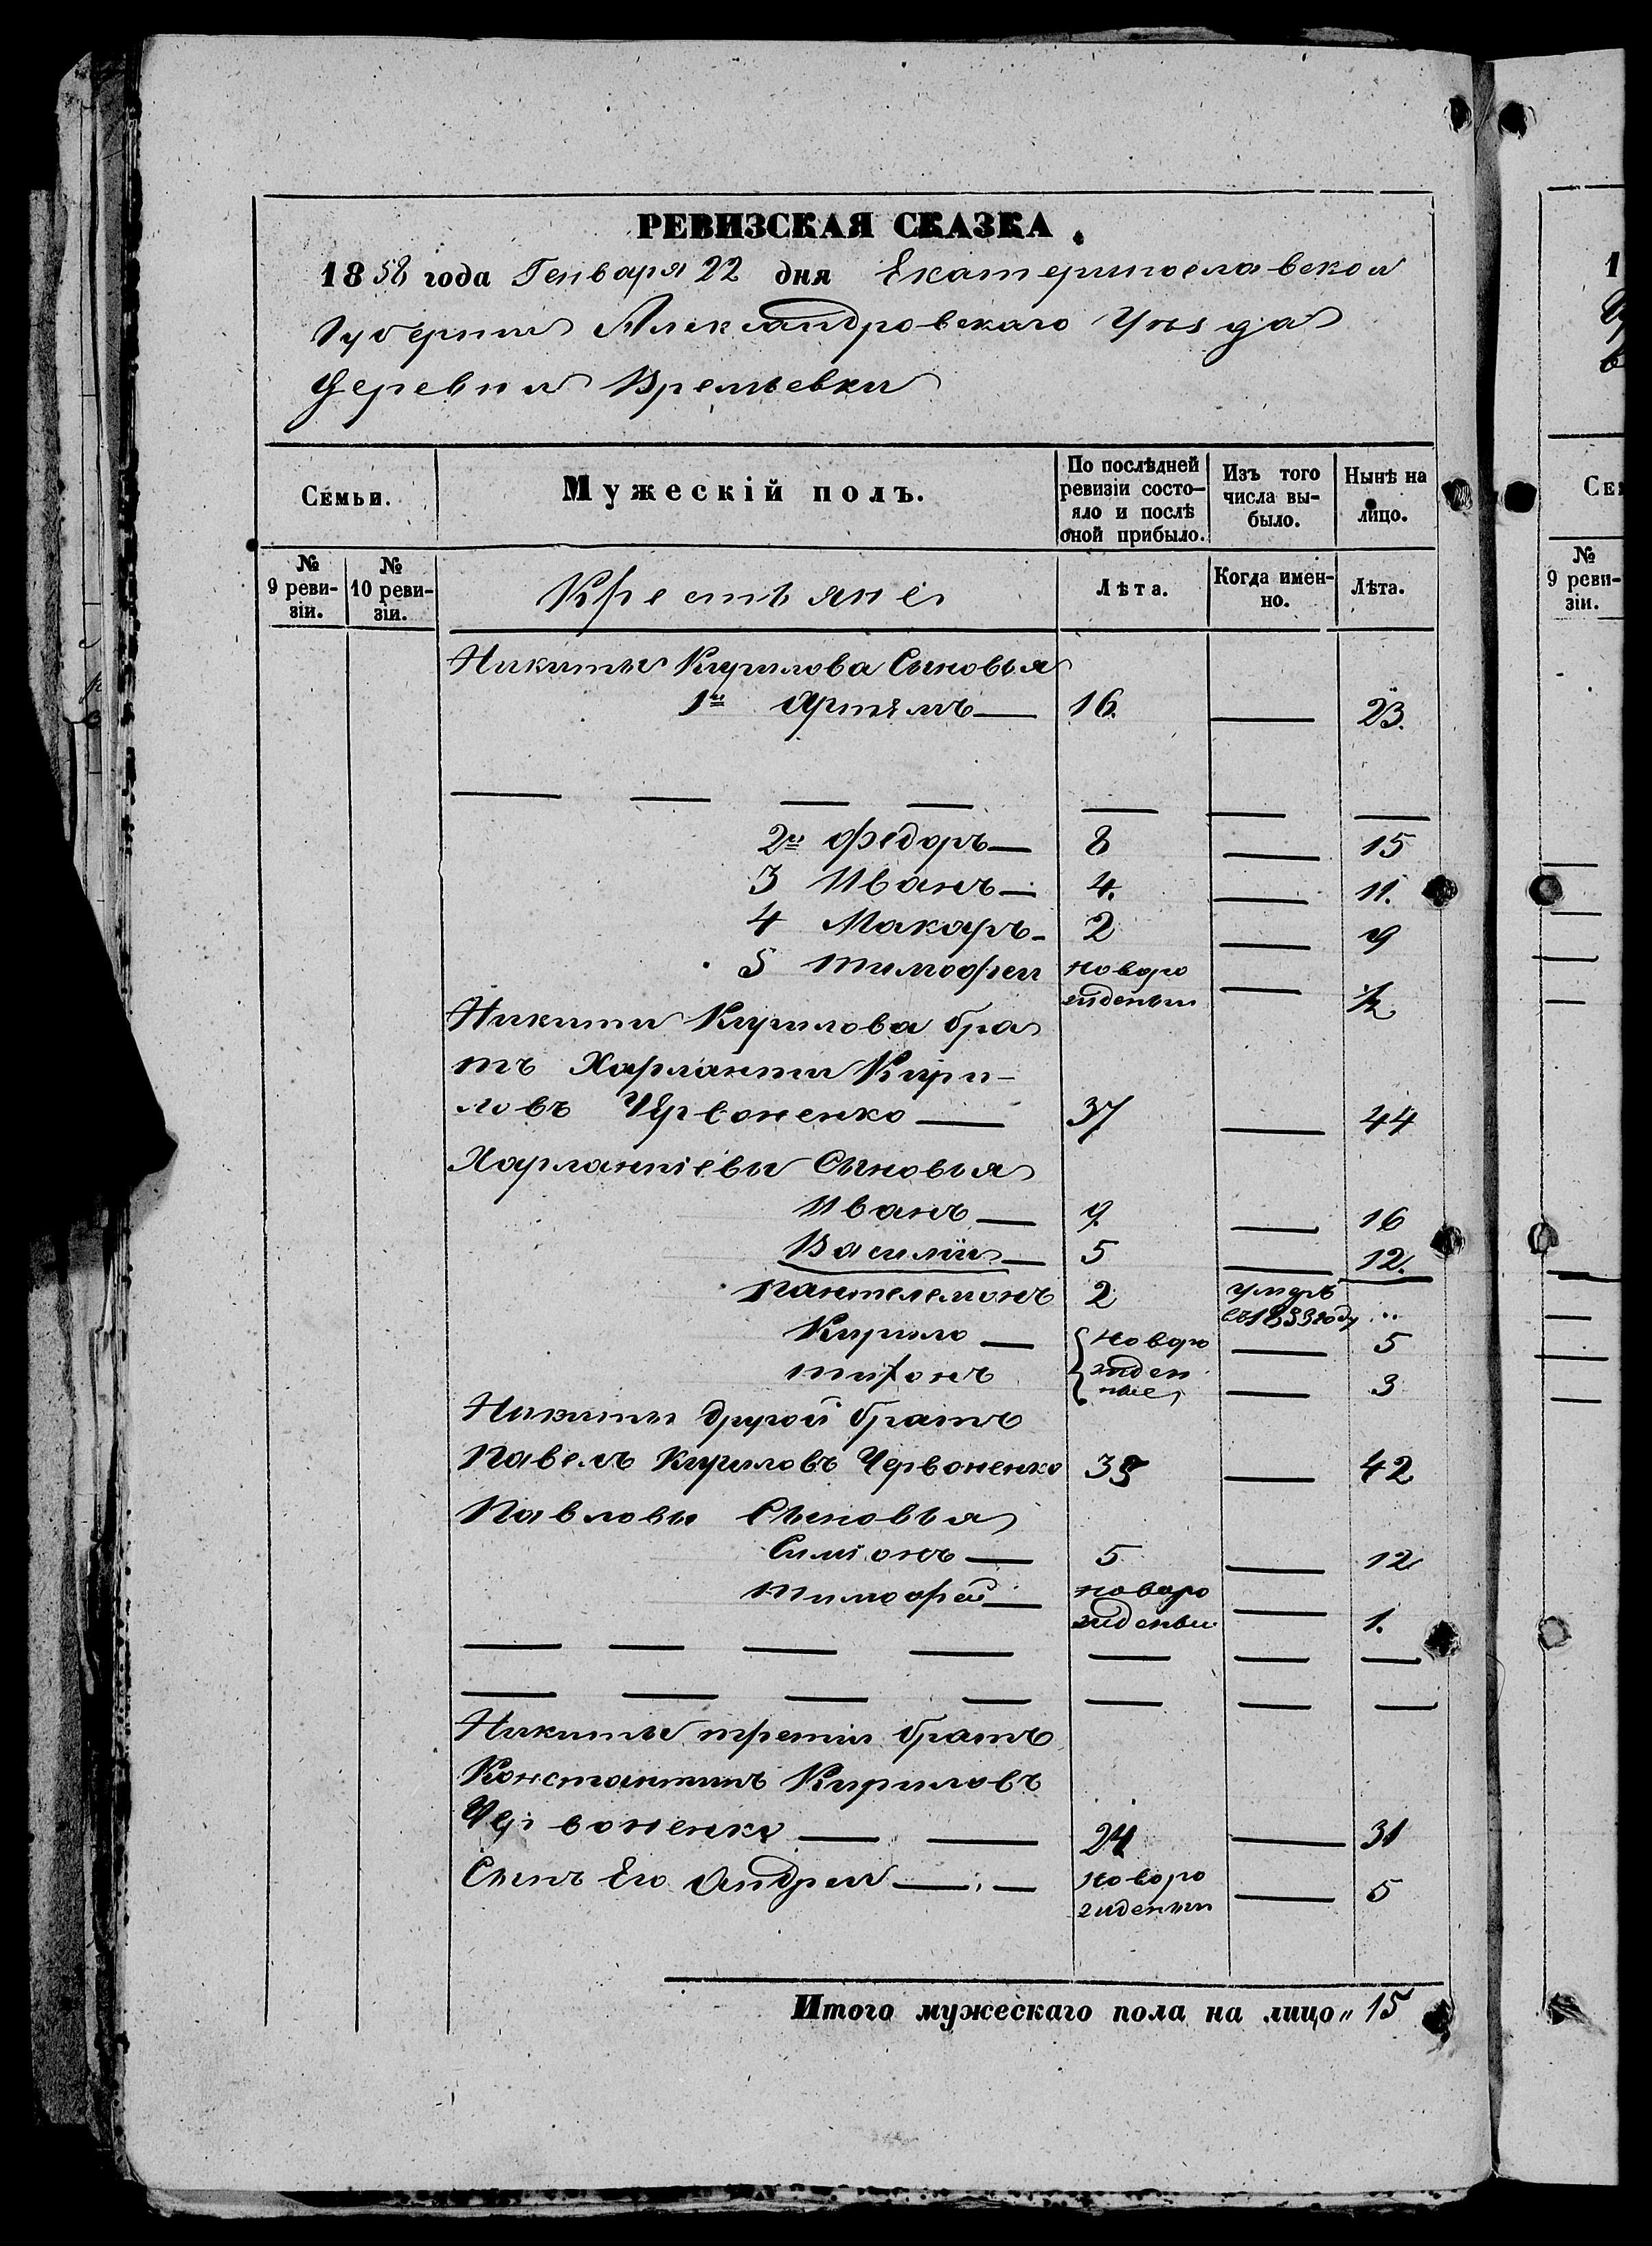 РЕВИЗСКАЯ СКАЗКА.
1858 года Генваря 22 дня Екатеринославской
Губернии Александровскаго Уѣзда
Деревни Времьевки
Семьи. Мужескій полъ. По послѣдней ревизіи состо-яло и послѣ оной прибыло. Изъ того числа вы-было. Нынѣ на лицо.
№ 9 реви-зіи. № 10 реви-зіи. Крестьяне Лѣта. Когда имен-но. Лѣта.
Никиты Кирилова Сыновья
1й Артемъ — 16. — 23.
— — — — — — —
2й Федоръ — 8 — 15
3 Иванъ — 4. — 11.
4 Макаръ - 2 — 9
5 Тимофей новоро
жденый — 1/2
Никиты Кирилова бра
тъ Харлантий Кири-
ловъ Червоненко — 37 — 44
Харлантіевы Сыновья
Иванъ — 9. — 16
Василій — 5 — 12.
Пантелемонъ 2 умеръ
въ 1853 году ...
Кирило — новоро — 5
Тихонъ жден
ные — 3
Никиты другой братъ
Павелъ Кириловъ Червоненко 35 — 42
Павловы Сыновья
Симіонъ — 5 — 12
Тимофей — новоро
жденый — 1.
— — — — — — —
— — — — — — —
Никиты третій братъ
Константинъ Кириловъ
Червоненко — — 24 — 31
Сынъ Его Андрей — — новоро
жденый — 5
Итого мужескаго пола на лицо " 15
1
Се
№
9 реви-
зіи.